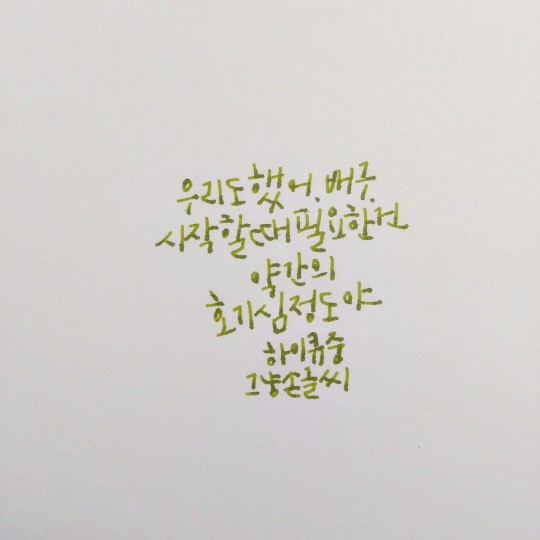 우리도했어. 배구.
시작할때필요한건
약간의
호기심정도야
하이큐중
그냥손글씨